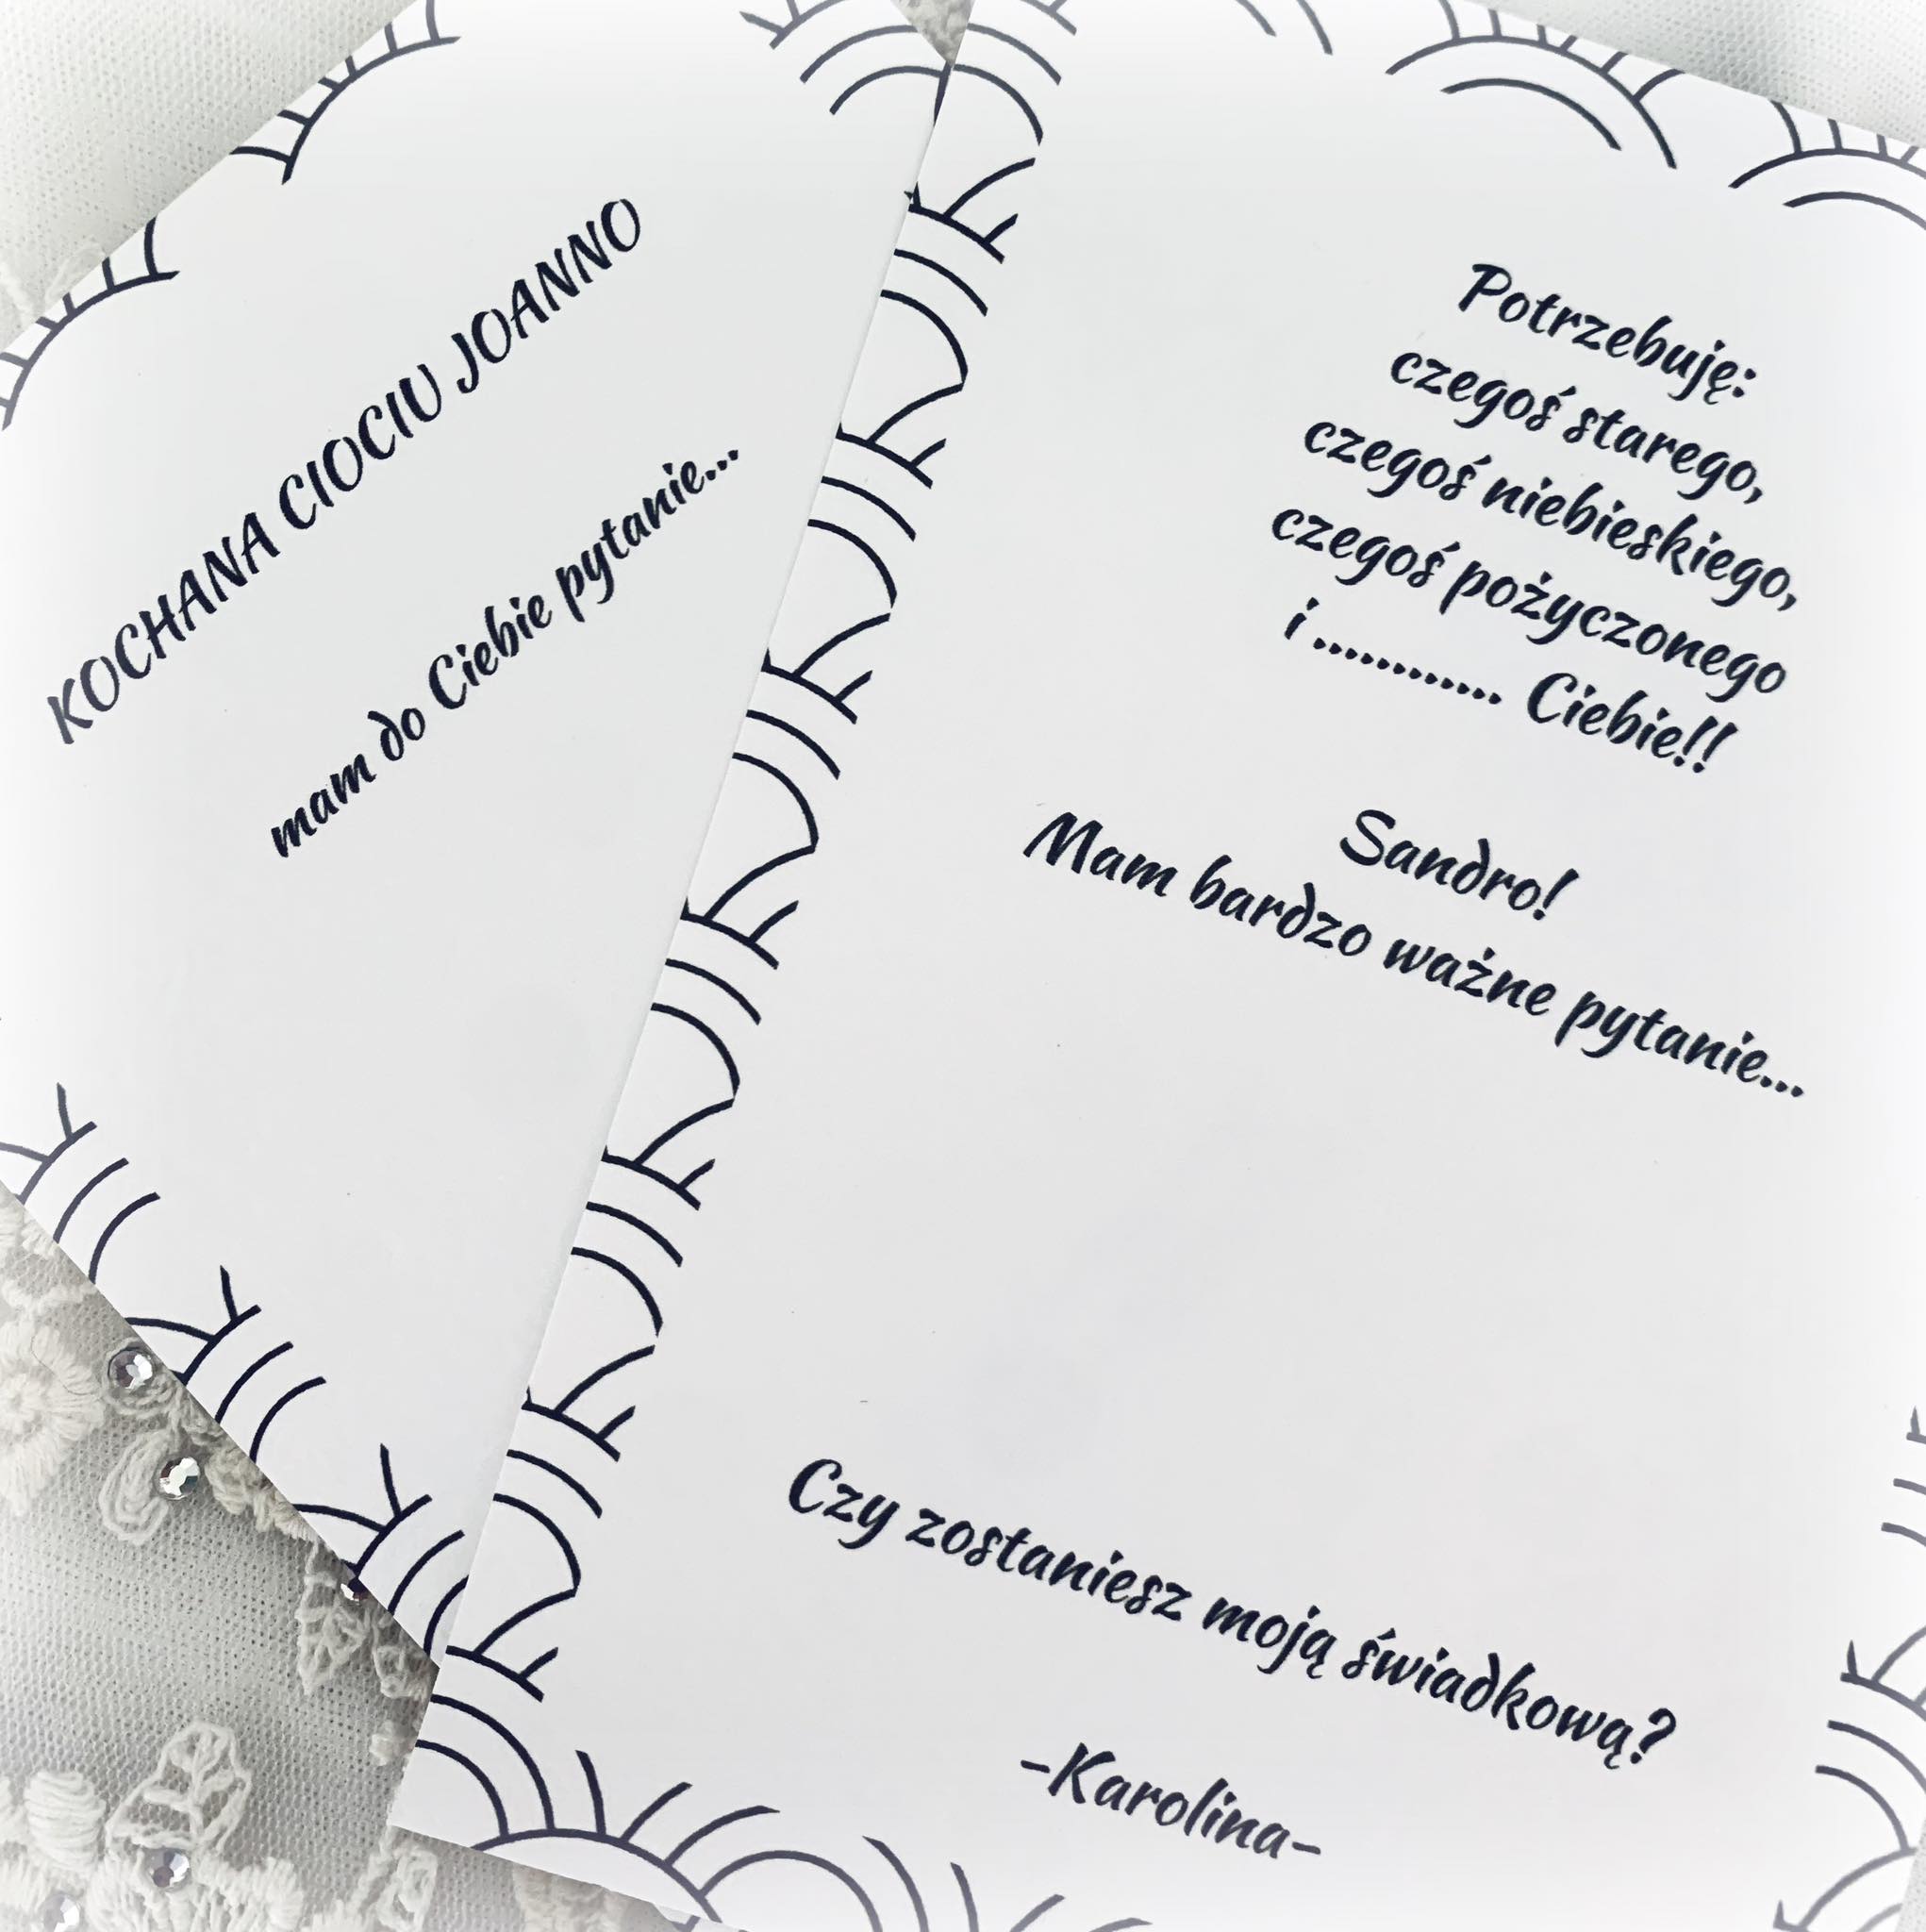 KOCHANA CIOCIU JOANNO
mam do Ciebie pytanie...
Potrzebuję:
czegoś starego,
czegoś niebieskiego,
czegoś pożyczonego
i ............ Ciebie!!
Sandro!
Mam bardzo ważne pytanie...
Czy zostaniesz moją świadkową?
-Karolina-